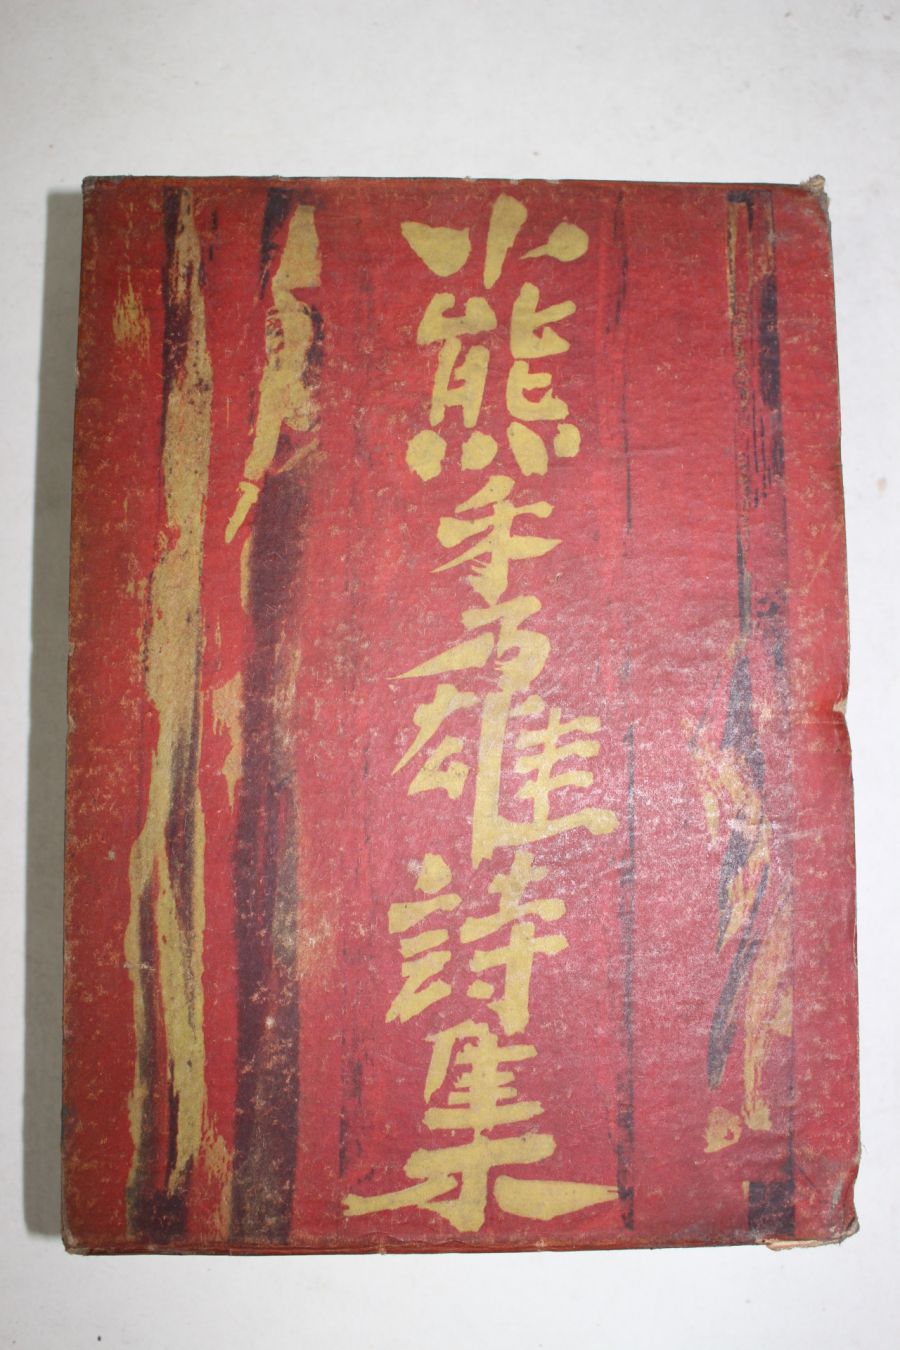 小熊秀雄詩集